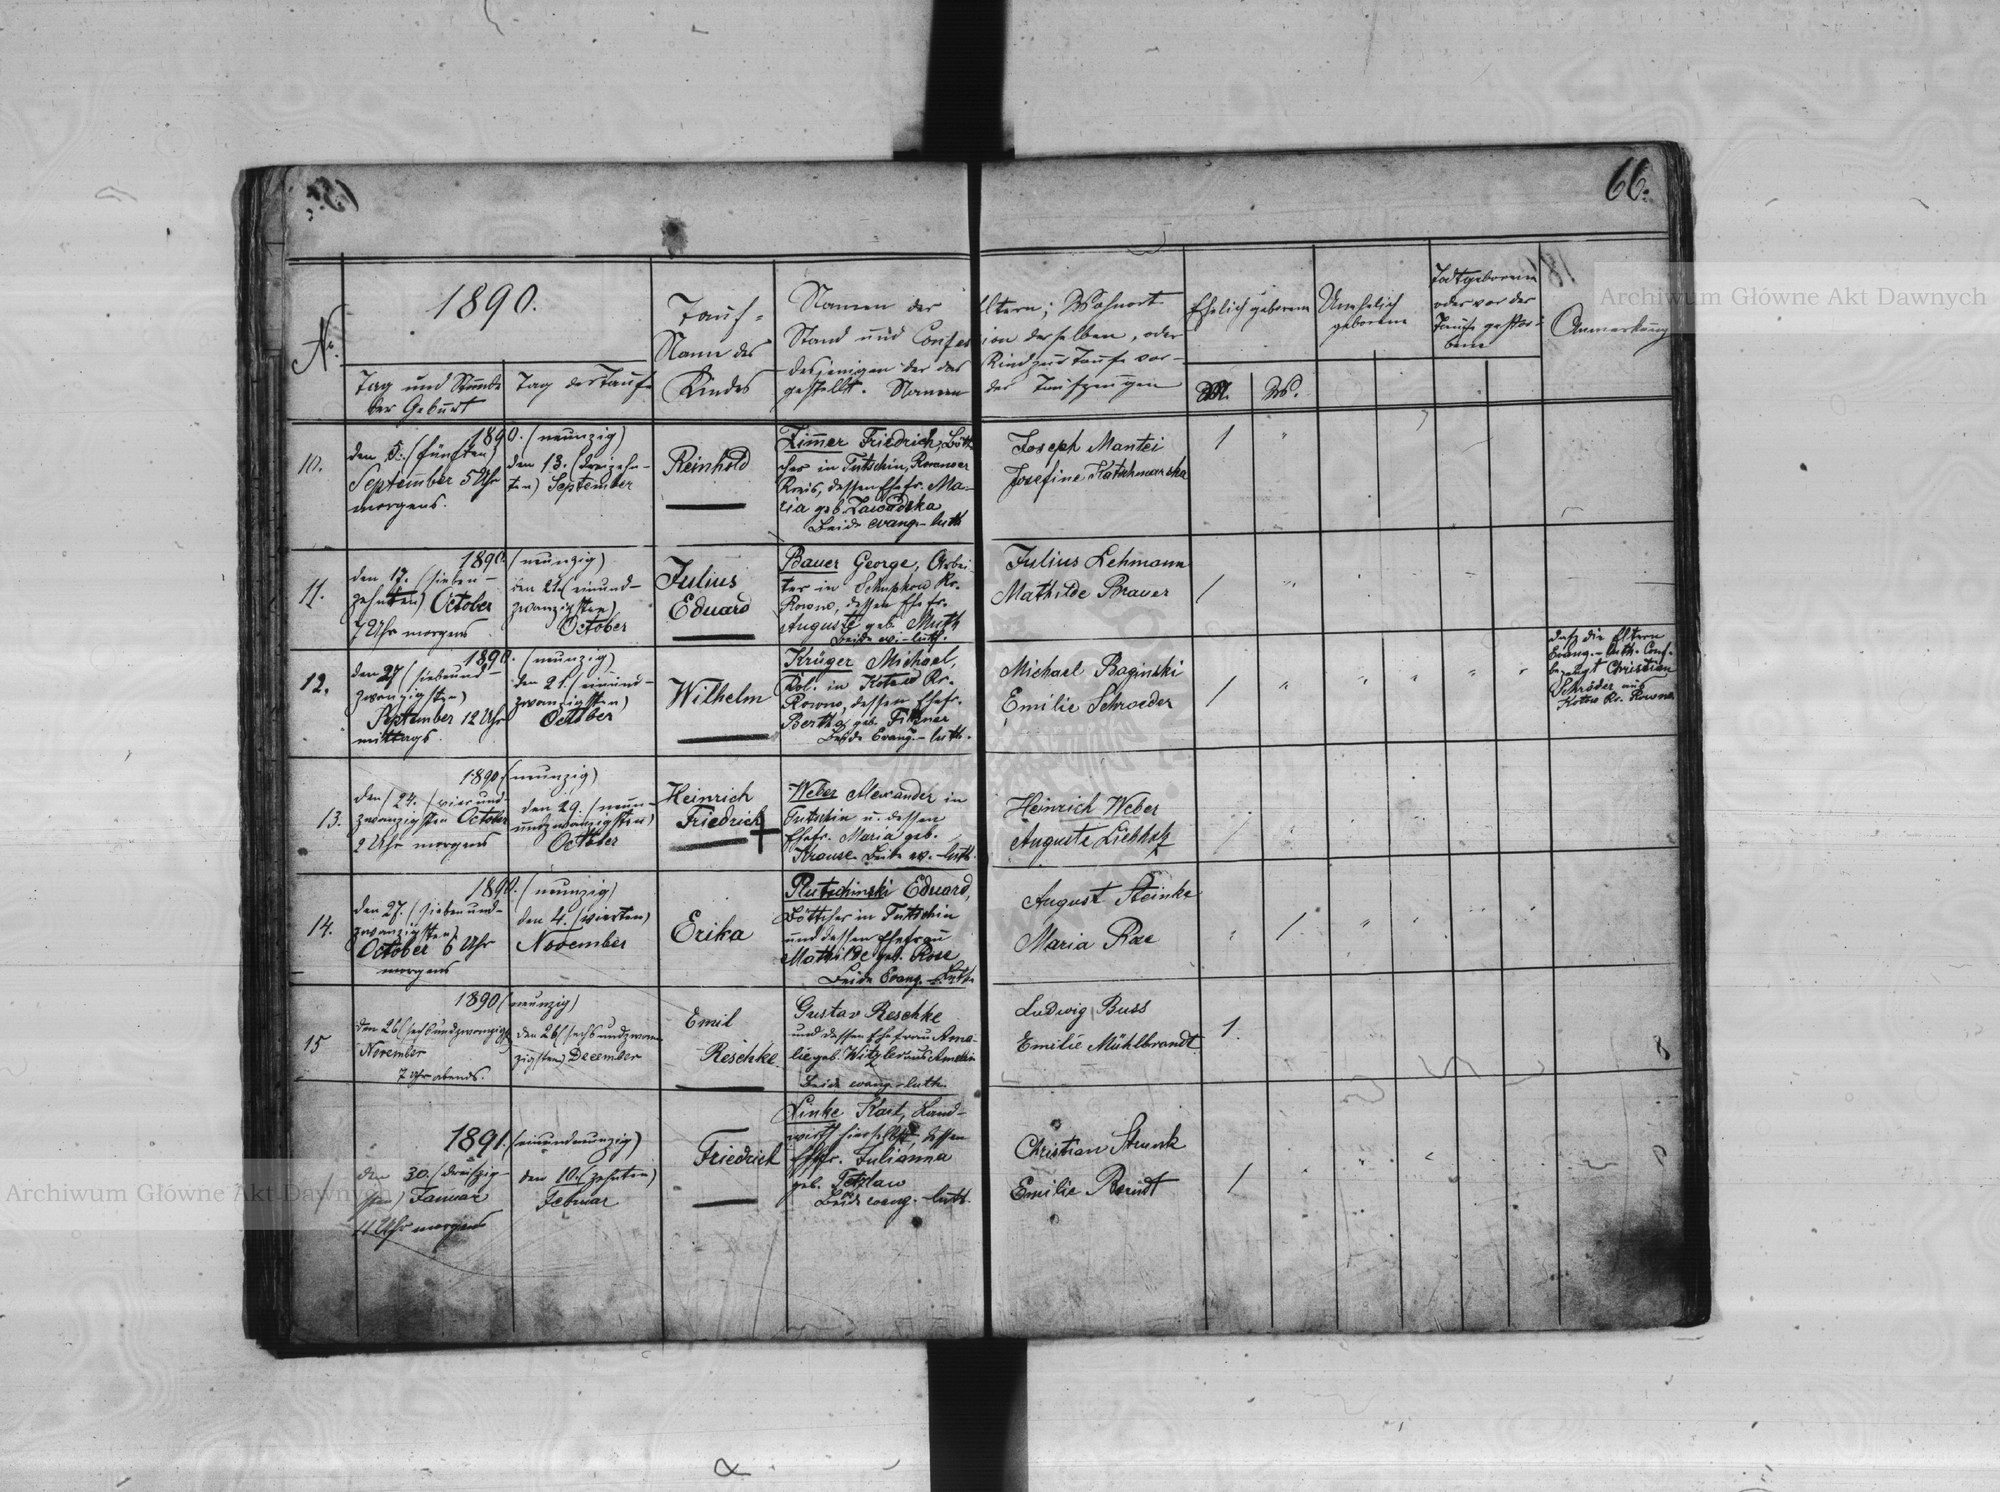 66.
1890.
Nr.
Tag und Stunde
der Geburt
Tag der Taufe
Tauf-
Name des
Kindes
Namen der Eltern; Wohnort
Stand und Confession derselben, oder
desjenigen der das Kind zur Taufe vor-
gestellt. Namen der Taufzeugen
Ehelich geboren
M.
W.
Unehelich
geborene
Todtgeborene
oder vor der
Taufe gestor-
bene
Anmerkung
10.
1890. (neunzig)
den 5. (fünften)
September 5 Uhr
morgens.
den 13. (dreizehn-
ten) September
Reinhold
Zimmer Friedrich, Bött-
cher in Tutschin, Rownoer
Kreis, dessen Ehefr. Ma-
ria geb. Zawadzka
Beide evang-luth
Joseph Mantei
Josefine Katschmarska
1
11.
1890. (neunzig)
den 17. (sieben-
zehnten) October
7 Uhr morgens
den 21. (einund-
zwanzigsten)
October
Julius
Eduard
Bauer George, Arbei-
ter in Schupkow Kr.
Rowno, dessen Ehefr.
Auguste geb. Muth
Beide ev-luth
Julius Lehmann
Mathilde Brauer
1
12.
1890. (neunzig)
den 27 (siebenund-
zwanzigsten)
September 12 Uhr
mittags.
den 21. (einund-
zwanzigsten)
October
Wilhelm
Krüger Michael,
Kol. in Kotow Kr.
Rowno, dessen Ehefr.
Bertha geb.
Beide Evang.-luth.
Michael Baginski
Emilie Schroeder
1
daß die Eltern
Evang.-luth. Conf.
bezeugt Christian
Schröder aus
Kotow Kr. Rowno
13.
1890 (neunzig)
den (24. (vierund-
zwanzigsten October
2 Uhr morgens
den 29. (neun-
undzwanzigsten)
October
Heinrich
Friedrich
Weber Alexander in
Tutschin u. dessen
Ehefr. Maria geb.
Krause Beide ev.-luth.
Heinrich Weber
Auguste Liebholz
1
14.
1890. (neunzig)
den 27. (siebenund-
zwanzigsten)
October 6 Uhr
morgens
den 4. (vierten)
November
Erika
Rutschinski Eduard,
Böttcher in Tutschin
und dessen Ehefrau
Mathilde geb. Rose
Beide Evang.-luth.
August Steinke
Maria Rae
1
15
1890 (neunzig)
den 26 (sechsundzwanzigst)
November
7 Uhr abends.
den 26 (sechsundzwan-
zigsten) December
Emil
Reschke
Gustav Reschke
und dessen Ehefrau Ama-
lie geb. Witzler aus Amelin
Beide evang-luth.
Ludwig Buss
Emilie Mühlbrandt
1.
1891. (einundneunzig)
den 30. (dreißig-
sten) Januar
11 Uhr morgens
den 10. (zehnten)
Februar
Friedrich
Linke Karl, Land-
wirth hierselbst, dessen
Ehefr. Julianna
geb. Tetzlaw
Beide evang.-luth.
Christian Strunk
Emilie Berndt
1
Archiwum Główne Akt Dawnych
Archiwum Główne Akt Dawnych